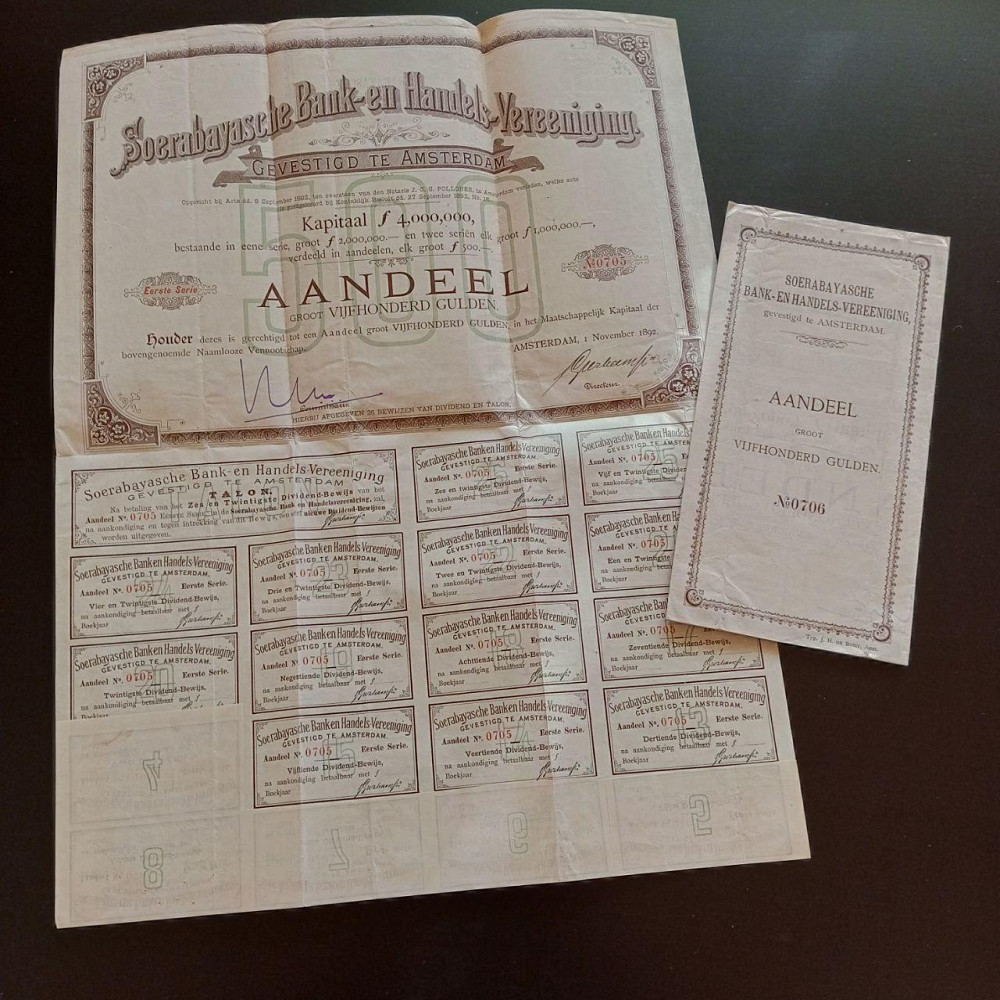 Soerabayasche Bank-en Handels-Vereeniging.
GEVESTIGD TE AMSTERDAM
500
Opgericht bij Acte dd. 9 September 1892, ten overstaan van den Notaris J. C. G. POLLONES, te Amsterdam verleden, welke acte
is goedgekeurd bij Koninklijk Besluit dd. 27 September 1892, No. 18.
Kapitaal ƒ 4,000,000,
bestaande in eene serie, groot ƒ 2,000,000.— en twee seriën elk groot ƒ 1,000,000,—,
verdeeld in aandeelen, elk groot ƒ 500.—
Eerste Serie.
No. 0705
AANDEEL
GROOT VIJFHONDERD GULDEN.
Houder dezes is gerechtigd tot een Aandeel groot VIJFHONDERD GULDEN, in het Maatschappelijk Kapitaal der
bovengenoemde Naamlooze Vennootschap.
AMSTERDAM, 1 November 1892.
Commissaris
Directeur.
HIERBIJ AFGEGEVEN 26 BEWIJZEN VAN DIVIDEND EN TALON.
Soerabayasche Bank-en Handels Vereeniging
GEVESTIGD TE AMSTERDAM
TALON.
Na betaling van het Zes en Twintigste Dividend-Bewijs van het
Aandeel No. 0705 Eerste Serie, zal de Soerabayasche Bank en Handelsvereeniging,
na aankondiging en tegen intrekking van dit Bewijs, nieuwe Dividend-Bewijzen
worden uitgegeven.
Soerabayasche Bank en Handels Vereeniging
GEVESTIGD TE AMSTERDAM.
Aandeel No. 0705 Eerste Serie.
Zes en Twintigste Dividend-Bewijs,
na aankondiging betaalbaar met ƒ
Boekjaar
Soerabayasche Bank
GEVESTIGD TE AMSTE
Aandeel No. 0705
Vijf en Twintigste Divid
na aankondiging
Boekjaar
Soerabayasche Bank en Handels Vereeniging
GEVESTIGD TE AMSTERDAM.
Aandeel No. 0705 Eerste Serie.
Vier en Twintigste Dividend-Bewijs,
na aankondiging betaalbaar met ƒ
Boekjaar
24
Soerabayasche Bank en Handels Vereeniging
GEVESTIGD TE AMSTERDAM.
Aandeel No. 0705 Eerste Serie.
Drie en Twintigste Dividend-Bewijs,
na aankondiging betaalbaar met ƒ
Boekjaar
23
Soerabayasche Bank en Handels Vereeniging
GEVESTIGD TE AMSTERDAM.
Aandeel No. 0705 Eerste Serie.
Twee en Twintigste Dividend-Bewijs,
na aankondiging betaalbaar met ƒ
Boekjaar
Soerabayasche
GEVESTIGD
Aandeel No. 0705
Een en Twintigste
na aankondiging
Boekjaar
Soerabayasche Bank en Handels Vereeniging
GEVESTIGD TE AMSTERDAM.
Aandeel No. 0705 Eerste Serie.
Twintigste Dividend-Bewijs,
na aankondiging betaalbaar met ƒ
20
Soerabayasche Bank en Handels Vereeniging
GEVESTIGD TE AMSTERDAM.
Aandeel No. 0705 Eerste Serie.
Negentiende Dividend-Bewijs,
na aankondiging betaalbaar met ƒ
Boekjaar
19
Soerabayasche Bank en Handels Vereeniging
GEVESTIGD TE AMSTERDAM.
Aandeel No. 0705 Eerste Serie.
Achttiende Dividend-Bewijs,
na aankondiging betaalbaar met ƒ
Boekjaar
Soerabayasche Ban
GEVESTIGD TE
Aandeel No. 070
Zeventiende Dividend-Bewijs,
na aankondiging betaalbaar met ƒ
Boekjaar
Soerabayasche Bank en Handels-Vereeniging
GEVESTIGD TE AMSTERDAM.
Aandeel No. 0705 Eerste Serie.
Vijftiende Dividend-Bewijs,
na aankondiging betaalbaar met ƒ
Boekjaar
15
Soerabayasche Bank en Handels-Vereeniging
GEVESTIGD TE AMSTERDAM.
Aandeel No. 0705 Eerste Serie.
Veertiende Dividend-Bewijs,
na aankondiging betaalbaar met ƒ
Boekjaar
14
Soerabayasche Bank en Handels-Vereeniging
GEVESTIGD TE AMSTERDAM.
Aandeel No. 0705 Eerste Serie.
Dertiende Dividend-Bewijs,
na aankondiging betaalbaar met ƒ
Boekjaar
13
4
8
7
SOERABAYASCHE
BANK-EN HANDELS-VEREENIGING,
gevestigd te AMSTERDAM.
AANDEEL
GROOT
VIJFHONDERD GULDEN.
No. 0706
Typ. J. H. de Bussy, Amst.